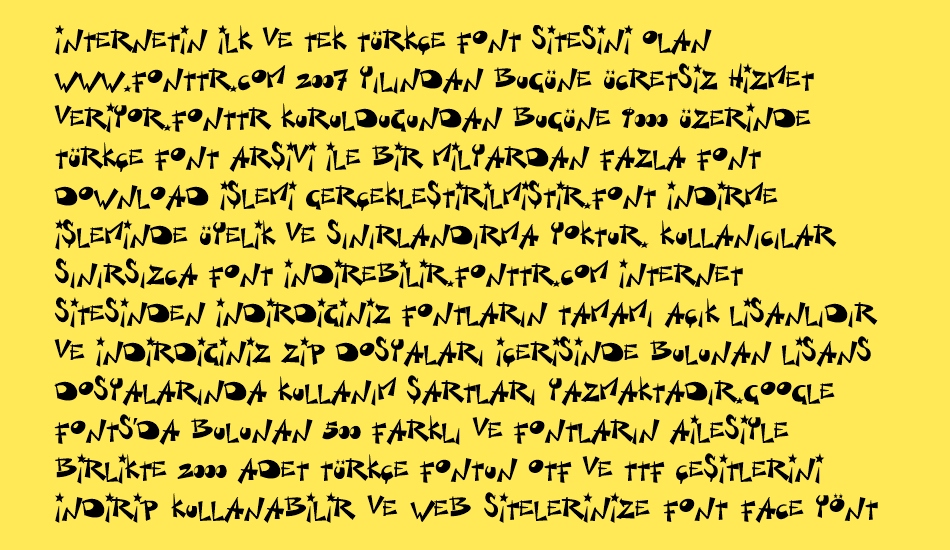 İNTERNETİN İLK VE TEK TÜRKÇE FONT SİTESİNİ OLAN
WWW.FONTTR.COM 2007 YILINDAN BUGÜNE ÜCRETSİZ HİZMET
VERİYOR.FONTTR KURULDUGUNDAN BUGÜNE 9000 ÜZERİNDE
TÜRKÇE FONT ARŞİVİ İLE BİR MİLYARDAN FAZLA FONT
DOWNLOAD İŞLEMİ GERÇEKLEŞTİRİLMİŞTİR.FONT İNDİRME
İŞLEMİNDE ÜYELİK VE SINIRLANDIRMA YOKTUR. KULLANICILAR
SINIRSIZCA FONT İNDİREBİLİR.FONTTR.COM İNTERNET
SİTESİNDEN İNDİRDİGİNİZ FONTLARIN TAMAMI AÇIK LİSANLIDIR
VE İNDİRDİGİNİZ ZİP DOSYALARI İÇERİSİNDE BULUNAN LİSANS
DOSYALARINDA KULLANIM ŞARTLARI YAZMAKTADIR.GOOGLE
FONTS'DA BULUNAN 500 FARKLI VE FONTLARIN AİLESİYLE
BİRLİKTE 2000 ADET TÜRKÇE FONTUN OTF VE TTF ÇEŞİTLERİNİ
İNDİRİP KULLANABİLİR VE WEB SİTELERİNİZE FONT FACE YÖNT